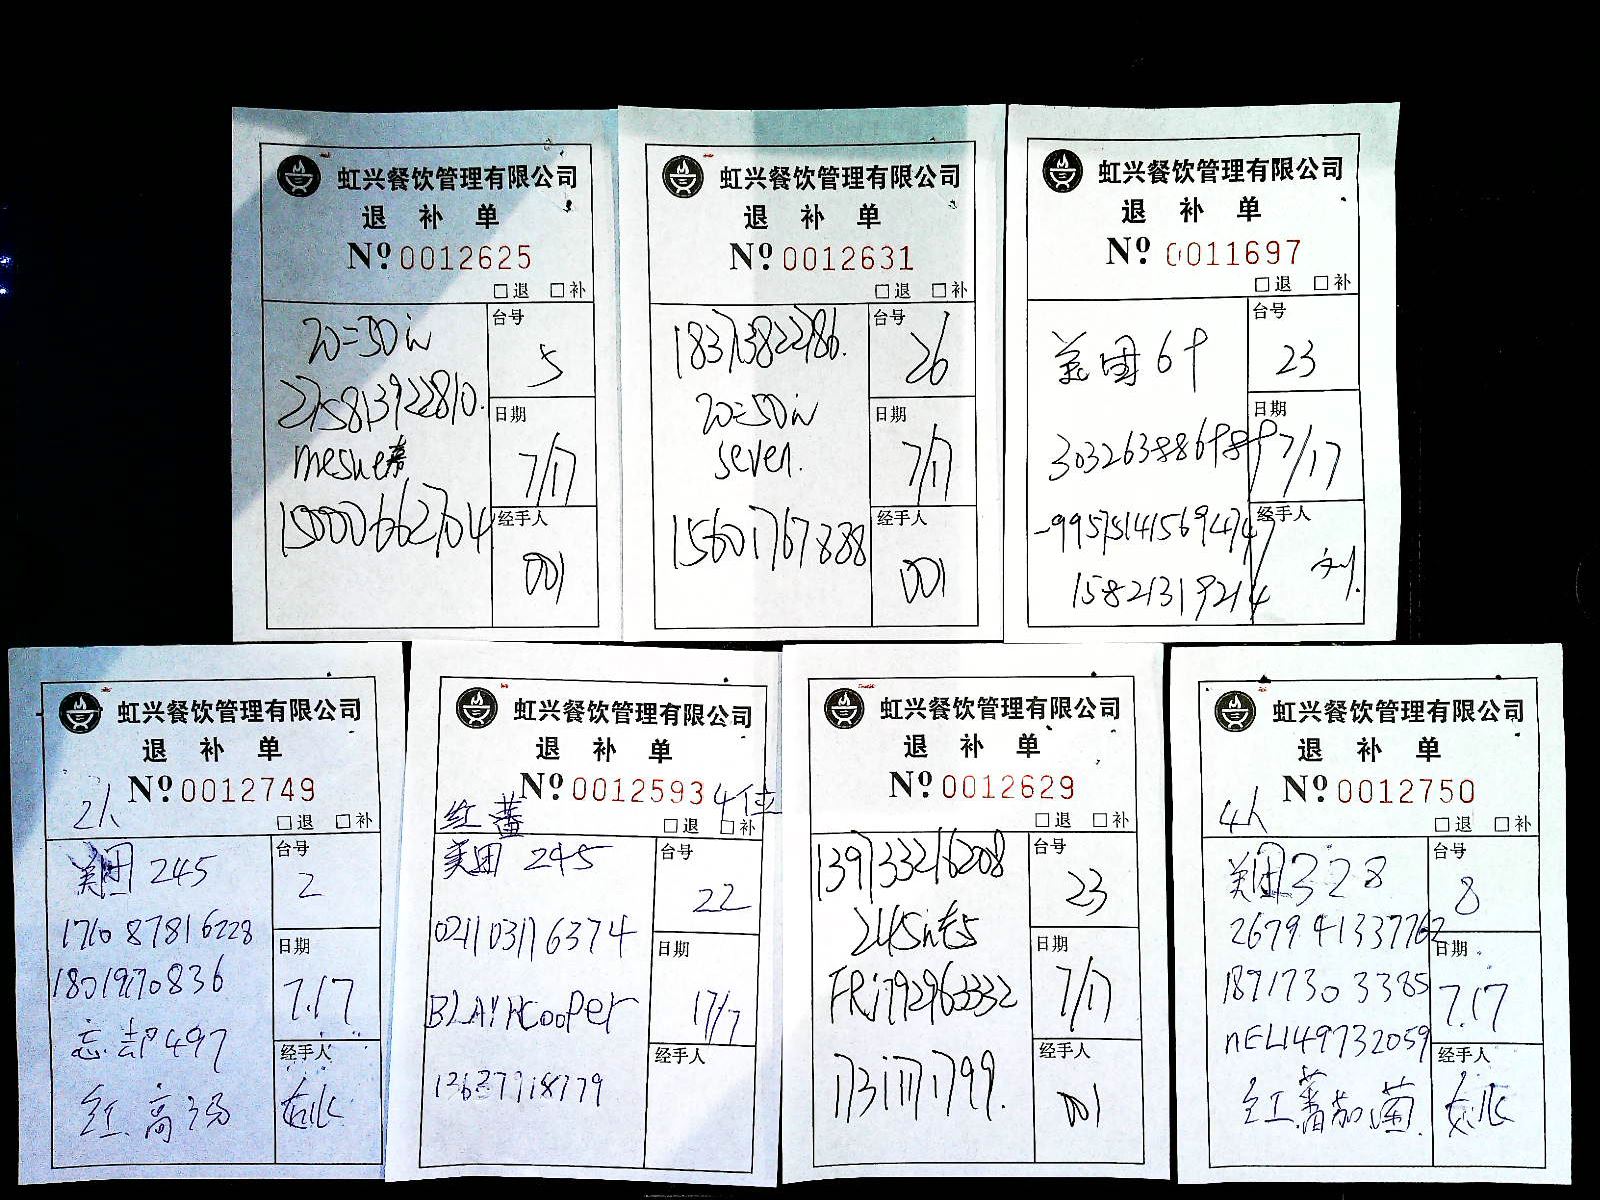 虹兴餐饮管理有限公司
退 补 单
Nº 0012625
□退 □补
20=50
台号
5
275813922810.
日期
7/17
mesue
15000662704
经手人
001
虹兴餐饮管理有限公司
退 补 单
Nº 0012631
□退 □补
18373822786.
台号
26
20=50
seven.
日期
7/17
15601767888
经手人
001
虹兴餐饮管理有限公司
退 补 单
Nº 0011697
□退 □补
美团69
台号
23
303263886989
日期
7/17
-99575141569474
经手人
刘
15821319214
虹兴餐饮管理有限公司
退 补 单
Nº 0012749
2人
□退 □补
美团 245
台号
2
1710 8781 6228
日期
7.17
18019270836
忘却497
经手人
红高汤
虹兴餐饮管理有限公司
退 补 单
Nº 0012593
4位
红
□退 □补
美团 245
台号
22
021103176374
日期
17/7
BLAIRCooper
经手人
13637918779
虹兴餐饮管理有限公司
退 补 单
Nº 0012629
□退 □补
139733216208
台号
23
245
日期
7/17
FRi792963332
经手人
001
17317171799.
虹兴餐饮管理有限公司
退 补 单
Nº 0012750
4人
□退 □补
美团328
台号
8
267941337762
日期
7.17
18717303385
nEL149732059
经手人
红.番茄菌